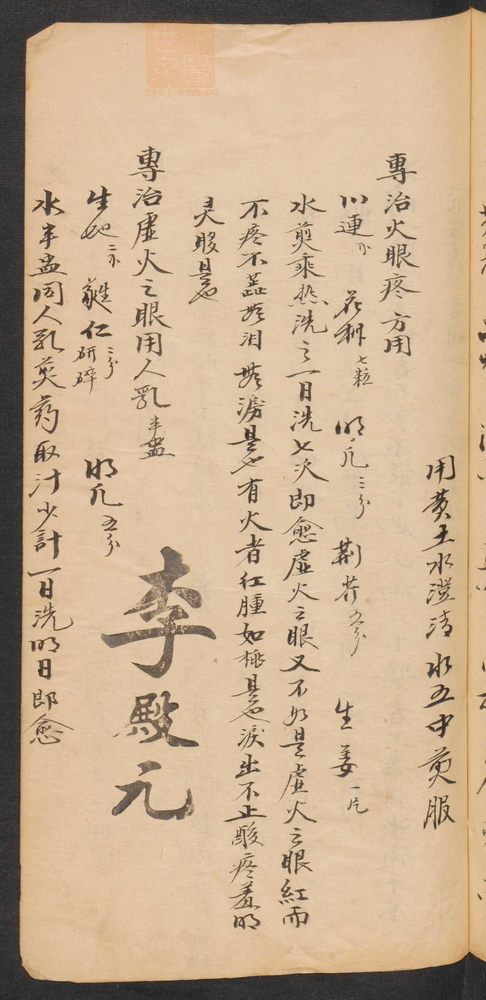 用黄土水澄清水五中煎服
專治火眼疼方用
川連 花椒七粒 明凡三分 荆芥五分 生姜一片
水煎乘热洗之一日洗七次即愈虚火之眼又不如是虚火之眼紅而
不疼不 泪 是也有火者红腫如桃是也淚出不止酸疼羞明
灵服是也
專治虚火之眼用人乳半盅
生地 蕤仁三分研碎 明凡五分
水半盅同人乳煎药取汁少計一日洗明日即愈
李殿元